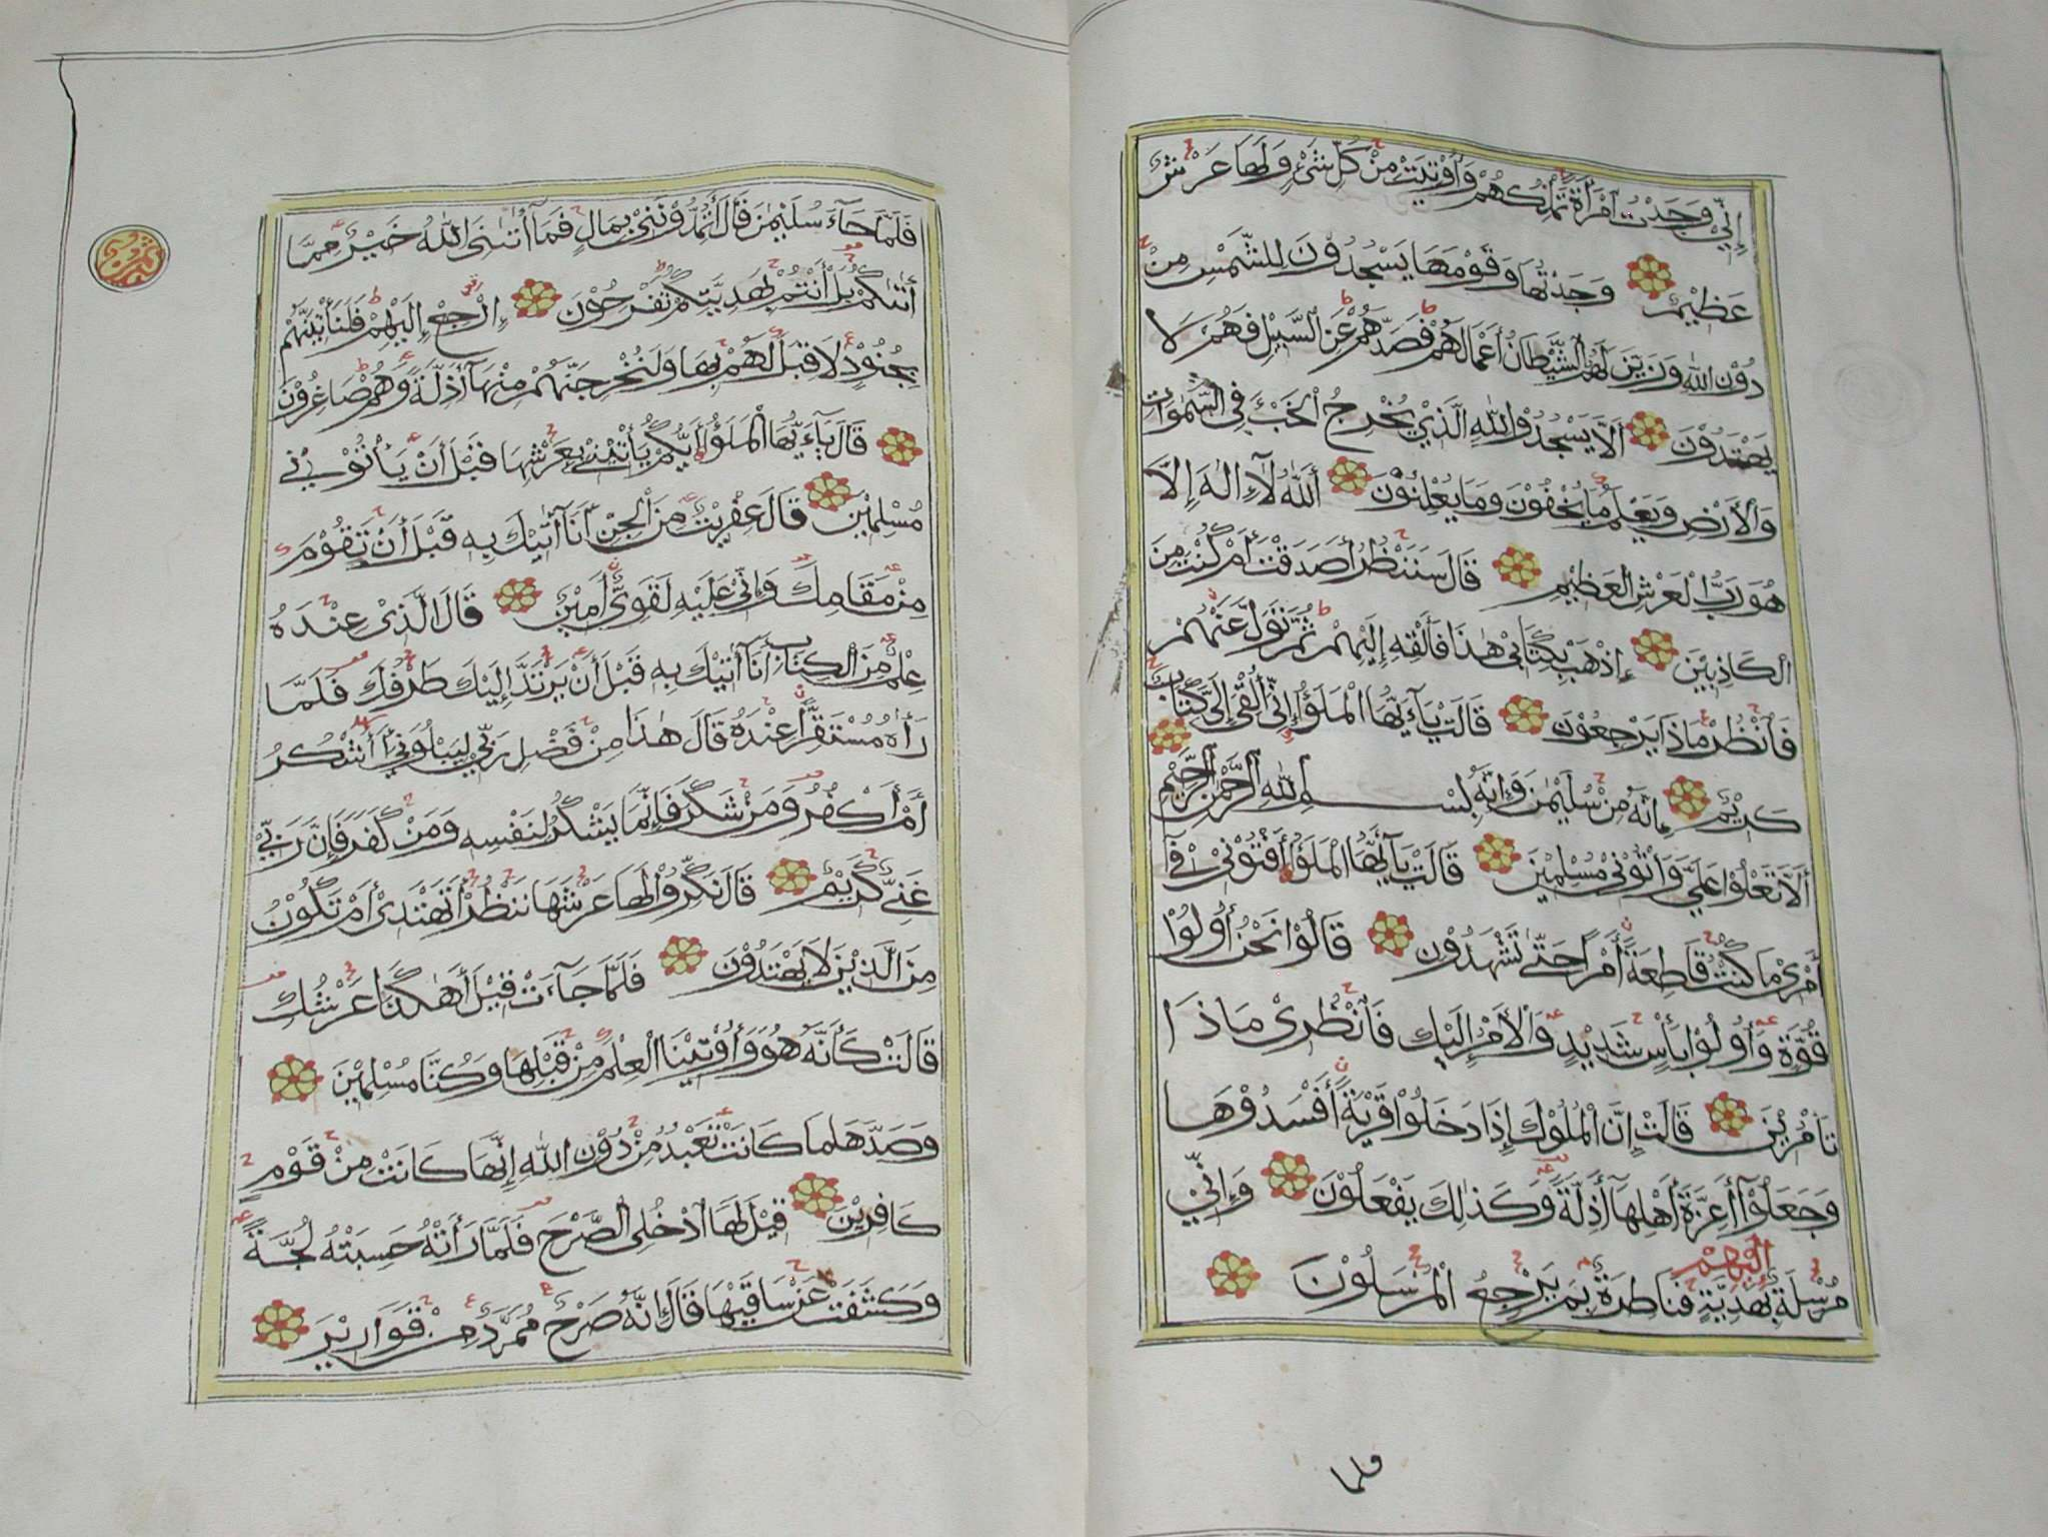 إِنِّي وَجَدْتُ ٱمْرَأَةً تَمْلِكُهُمْ وَأُوْتِيَتْ مِنْ كُلِّ شَيْءٍ وَلَهَا عَرْشٌ
عَظِيْمٌ وَجَدْتُهَا وَقَوْمَهَا يَسْجُدُوْنَ لِلشَّمْسِ مِنْ
دُوْنِ اللّٰهِ وَزَيَّنَ لَهُمُ الشَّيْطَانُ أَعْمَالَهُمْ فَصَدَّهُمْ عَنِ السَّبِيْلِ فَهُمْ لَا
يَهْتَدُوْنَ أَلَّا يَسْجُدُوْا لِلّٰهِ الَّذِيْ يُخْرِجُ الْخَبْءَ فِي السَّمٰوَاتِ
وَالْأَرْضِ وَيَعْلَمُ مَا يُخْفُوْنَ وَمَا يُعْلِنُوْنَ أَللّٰهُ لَآ إِلٰهَ إِلَّا
هُوَ رَبُّ الْعَرْشِ الْعَظِيْمِ قَالَ سَنَنْظُرُ أَصَدَقْتَ أَمْ كُنْتَ مِنَ
الْكَاذِبِيْنَ إِذْهَبْ بِكِتَابِيْ هٰذَا فَأَلْقِهْ إِلَيْهِمْ ثُمَّ تَوَلَّ عَنْهُمْ
فَٱنْظُرْ مَاذَا يَرْجِعُوْنَ قَالَتْ يَآءَيُّهَا الْمَلَؤُا إِنِّيْ أُلْقِيَ إِلَيَّ كِتَابٌ
كَرِيْمٌ إِنَّهُ مِنْ سُلَيْمٰنَ وَإِنَّهُ بِسْمِ اللّٰهِ الرَّحْمٰنِ الرَّحِيْمِ
أَلَّا تَعْلُوْا عَلَيَّ وَأْتُوْنِيْ مُسْلِمِيْنَ قَالَتْ يَآأَيُّهَا الْمَلَؤُا أَفْتُوْنِيْ فِيْ
أَمْرِيْ مَا كُنْتُ قَاطِعَةً أَمْرًا حَتّٰى تَشْهَدُوْنِ قَالُوْا نَحْنُ أُولُوْا
قُوَّةٍ وَأُولُوْا بَأْسٍ شَدِيْدٍ وَالْأَمْرُ إِلَيْكِ فَٱنْظُرِيْ مَاذَا
تَأْمُرِيْنَ قَالَتْ إِنَّ الْمُلُوْكَ إِذَا دَخَلُوْا قَرْيَةً أَفْسَدُوْهَا
وَجَعَلُوْآ أَعِزَّةَ أَهْلِهَآ أَذِلَّةً وَكَذٰلِكَ يَفْعَلُوْنَ وَإِنِّيْ
مُرْسِلَةٌ إِلَيْهِمْ بِهَدِيَّةٍ فَنَاظِرَةٌ بِمَ يَرْجِعُ الْمُرْسَلُوْنَ
فلما
فَلَمَّا جَآءَ سُلَيْمٰنَ قَالَ أَتُمِدُّوْنَنِيْ بِمَالٍ فَمَآ أٰتٰنِيَ اللّٰهُ خَيْرٌ مِمَّا
أٰتٰكُمْ بَلْ أَنْتُمْ بِهَدِيَّتِكُمْ تَفْرَحُوْنَ إِرْجِعْ إِلَيْهِمْ فَلَنَأْتِيَنَّهُمْ
بِجُنُوْدٍ لَا قِبَلَ لَهُمْ بِهَا وَلَنُخْرِجَنَّهُمْ مِنْهَآ أَذِلَّةً وَهُمْ صَاغِرُوْنَ
قَالَ يَآءَيُّهَا الْمَلَؤُا أَيُّكُمْ يَأْتِيْنِيْ بِعَرْشِهَا قَبْلَ أَنْ يَأْتُوْنِيْ
مُسْلِمِيْنَ قَالَ عِفْرِيْتٌ مِنَ الْجِنِّ أَنَآ أٰتِيْكَ بِهِ قَبْلَ أَنْ تَقُوْمَ
مِنْ مَقَامِكَ وَإِنِّيْ عَلَيْهِ لَقَوِيٌّ أَمِيْنٌ قَالَ الَّذِيْ عِنْدَهُ
عِلْمٌ مِنَ الْكِتَابِ أَنَآ أٰتِيْكَ بِهِ قَبْلَ أَنْ يَرْتَدَّ إِلَيْكَ طَرْفُكَ فَلَمَّا
رَأٰهُ مُسْتَقِرًّا عِنْدَهُ قَالَ هٰذَا مِنْ فَضْلِ رَبِّيْ لِيَبْلُوَنِيْ أَأَشْكُرُ
أَمْ أَكْفُرُ وَمَنْ شَكَرَ فَإِنَّمَا يَشْكُرُ لِنَفْسِهِ وَمَنْ كَفَرَ فَإِنَّ رَبِّيْ
غَنِيٌّ كَرِيْمٌ قَالَ نَكِّرُوْا لَهَا عَرْشَهَا نَنْظُرْ أَتَهْتَدِيْ أَمْ تَكُوْنُ
مِنَ الَّذِيْنَ لَا يَهْتَدُوْنَ فَلَمَّا جَآءَتْ قِيْلَ أَهٰكَذَا عَرْشُكِ
قَالَتْ كَأَنَّهُ هُوَ وَأُوْتِيْنَا الْعِلْمَ مِنْ قَبْلِهَا وَكُنَّا مُسْلِمِيْنَ
وَصَدَّهَا مَا كَانَتْ تَعْبُدُ مِنْ دُوْنِ اللّٰهِ إِنَّهَا كَانَتْ مِنْ قَوْمٍ
كَافِرِيْنَ قِيْلَ لَهَا ادْخُلِي الصَّرْحَ فَلَمَّا رَأَتْهُ حَسِبَتْهُ لُجَّةً
وَكَشَفَتْ عَنْ سَاقَيْهَا قَالَ إِنَّهُ صَرْحٌ مُمَرَّدٌ مِنْ قَوَارِيْرَ